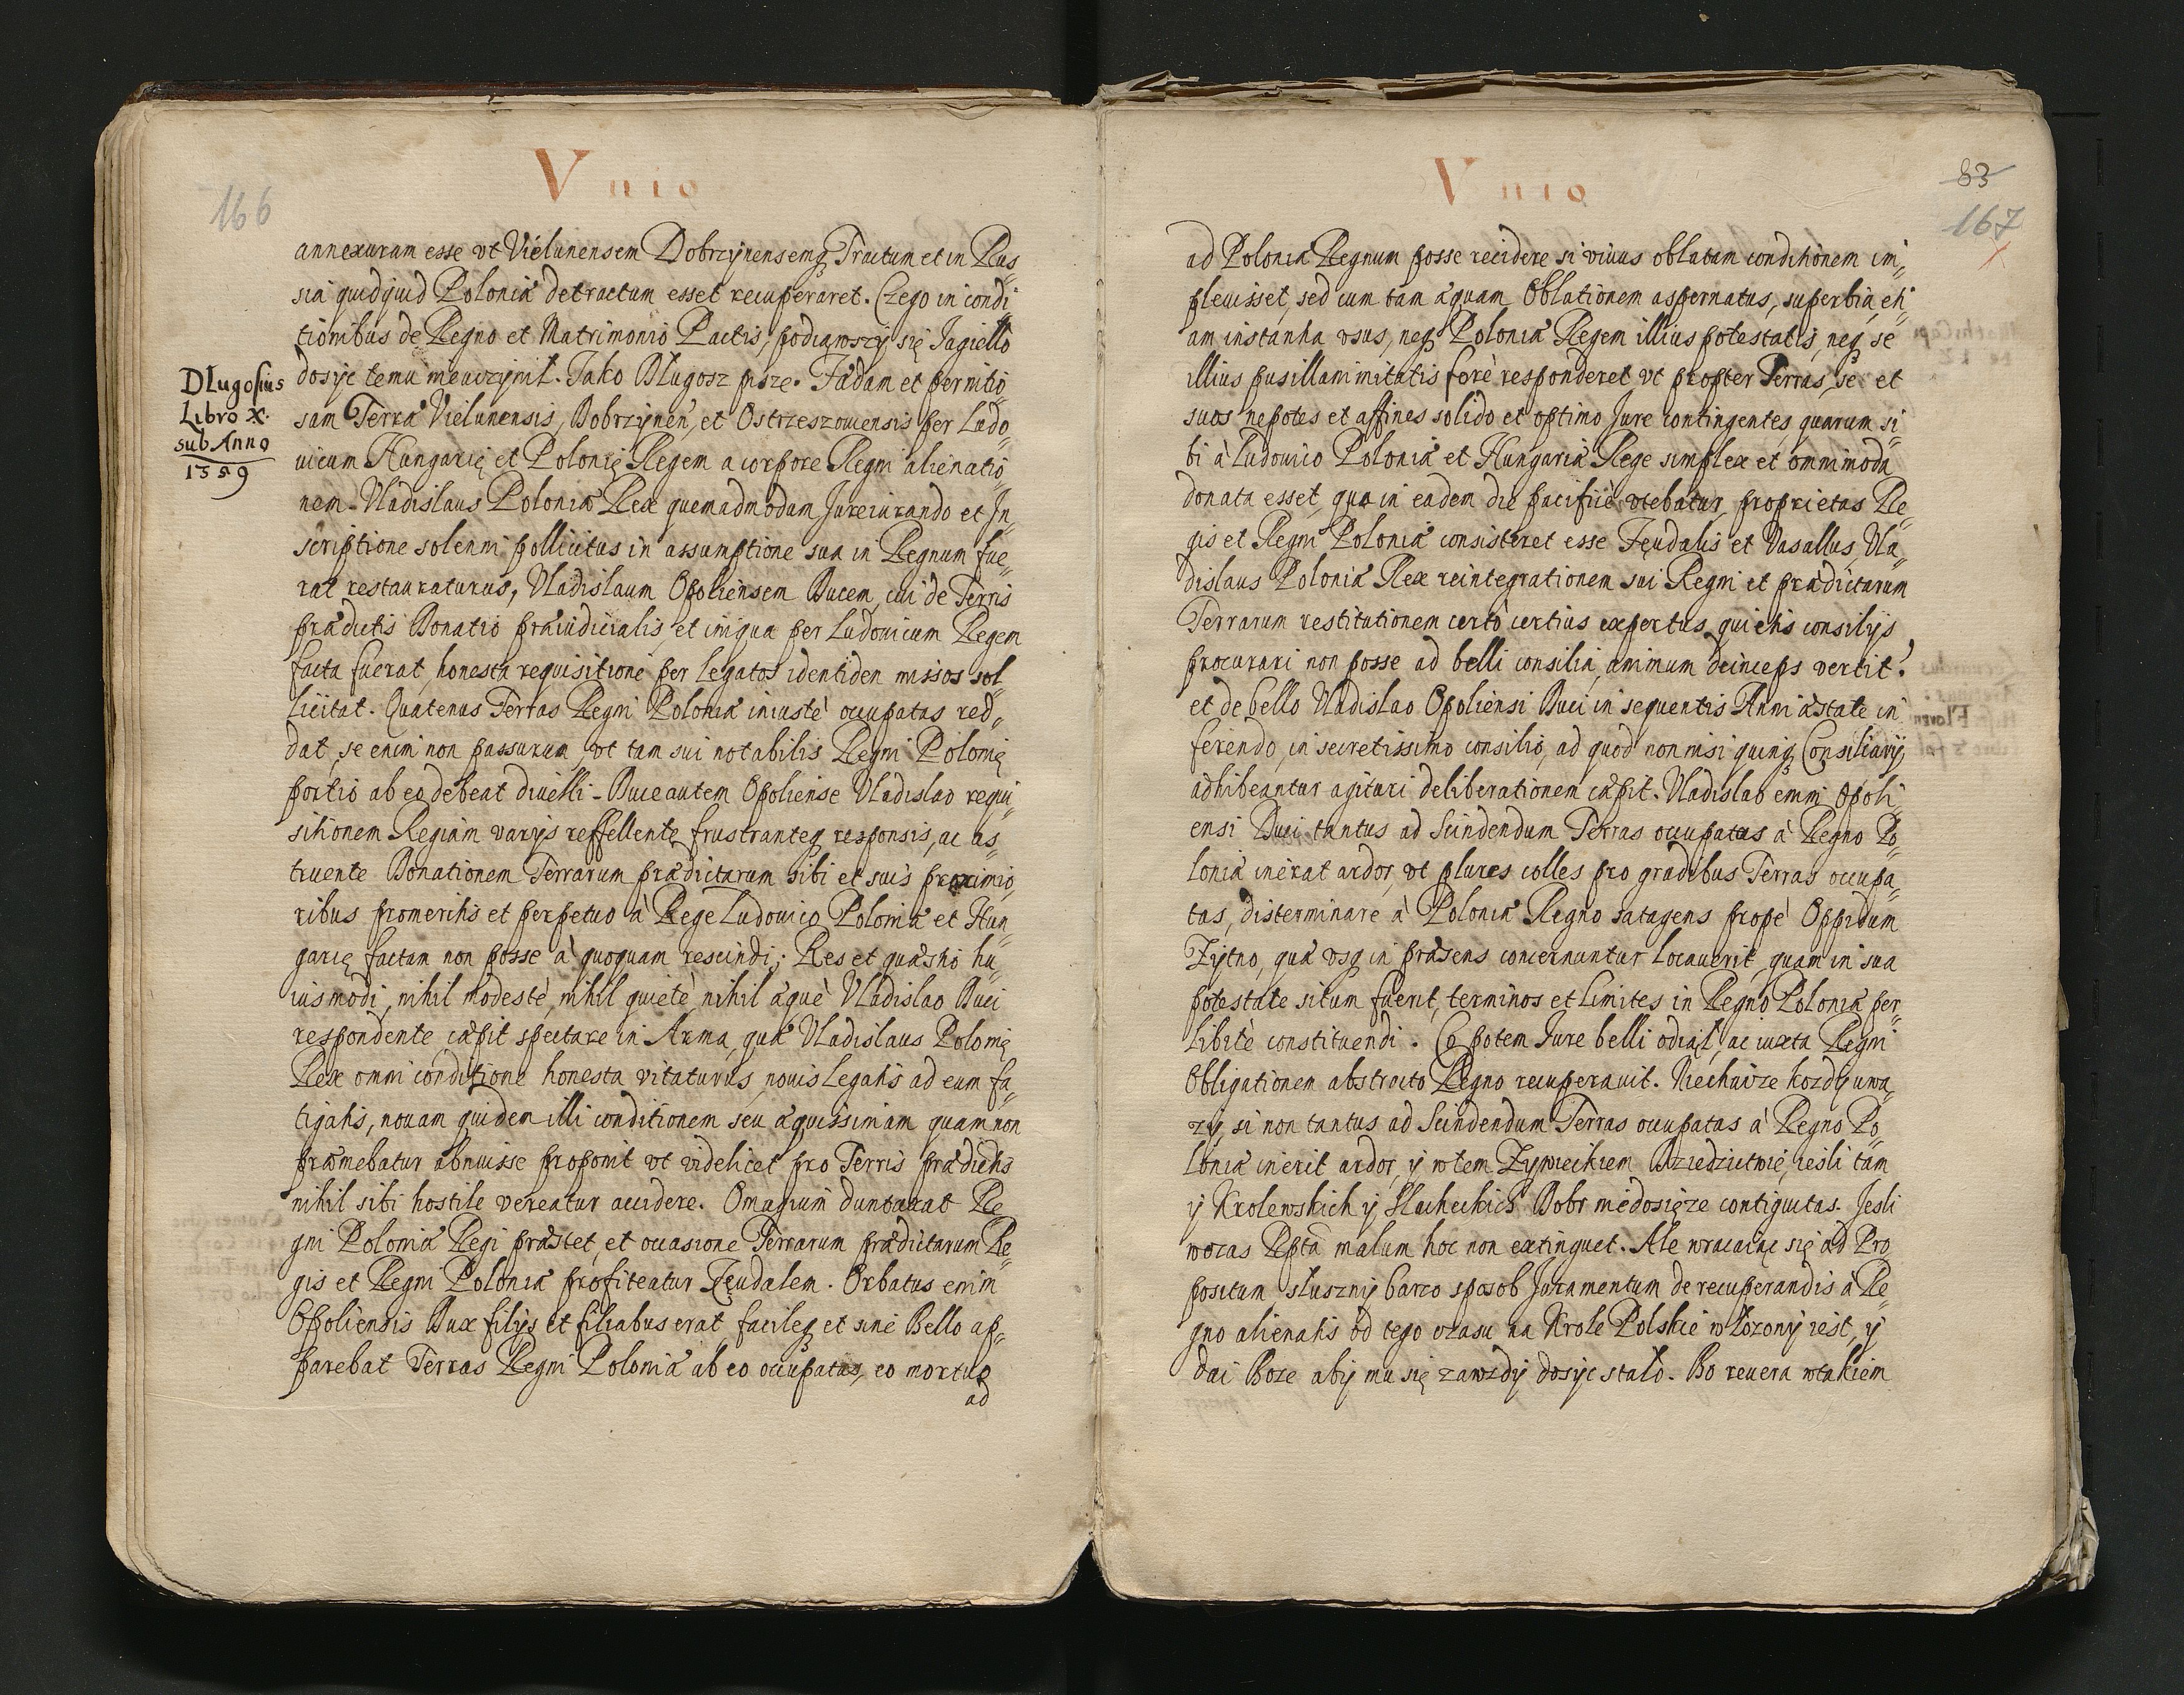 Vnio
166
annexuram esse vt Vielunensem Dobrzynensemq Tractum et in Rus„
sia quidquid Poloniæ detractum esset recuperaret. Czego in condi„
tionibus de Regno et Matrimonio Pactis, podiąwszy się Jagiełło
dosyc temu nieuczynił. Jako Dlugosz pisze. Fædam et pernitio„
Dlugosius
Libro X.
sub Anno
1359
sam Terræ Vielunensis, Dobrzynen, et Ostrzeszouensis per Ludo„
uicum Hungarię et Polonię Regem a corpore Regni alienatio„
nem. Vladislaus Poloniæ Rex quemadmodum Jureiurando et In„
scriptione solenni pollicitus in assumptione sua in Regnum fue„
rat restauraturus, Vladislaum Opoliensem Ducem, cui de Terris
prædictis Donatio præiudicialis et iniqua per Ludouicum Regem
facta fuerat, honesta requisitione per legatos identiden missos sol„
licitat. Quatenus Terras Regni Poloniæ iniustè occupatas red„
dat, se enim non passurum, vt tam sui notabilis Regni Polonię
portio ab eo debeat diuelli. Duce autem Opoliense Vladislao requi„
sitionem Regiam varys reffellente, frustranteq responsis, ac as„
truente Donationem Terrarum prædictarum sibi et suis proximio„
ribus promeritis et perpetuo à Rege Ludouico Poloniæ et Hun„
garię factam non posse à quoquam rescindi; Res et quæstio hu„
iusmodi, nihil modestè, nihil quietè, nihil æquè Vladislao Duci
respondente cæpit spectare in Arma, quæ Vladislaus Polonię
Rex omni conditione honesta vitaturus, nouis Legatis ad eum fa„
tigatis, nouam quidem illi conditionem seu æquissimam quam non
præmebatur abnuisse proponit vt videlicet pro Terris prædictis
nihil sibi hostile vereatur accidere. Omagium duntaxat Re„
gni Poloniæ Regi præstet, et occasione Terrarum prædictarum Re„
gis et Regni Poloniæ profiteatur Feudalem. Orbatus enim
Opoliensis Dux filijs et filiabus erat, facileq et sine Bello ap„
parebat Terras Regni Poloniæ ab eo occupatas, eo mortuo
ad
Vnio
83
167
ad Poloniæ Regnum posse recidere si viuus oblatam conditionem im„
pleuisset, sed cum tam æquam Oblationem aspernatus, superbia, eti„
am instantia vsus, neq Poloniæ Regem illius potestatis, neq se
illius pusillanimitatis forè responderet vt propter Terras, se et
suos nepotes et affines solido et optimo Jure contingentes quarum si„
bi à Ludouico Poloniæ et Hungariæ Rege simplex et omnimoda
donata esset, qua in eadem die pacificè vtebatur, proprietas Re„
gis et Regni Poloniæ consisteret esse Feudalis et Vasallus, Vla„
dislaus Poloniæ Rex reintegrationem sui Regni et prædictarum
Terrarum restitutionem certò certius expertus quietis consilijs
procurari non posse ad belli consilia, animum deinceps vertit.
et de bello Vladislao Opoliensi Duci in sequentis Anni æstate in„
ferendo, in secretissimo consilio, ad quod non nisi quinq Consiliarij
adhibeantur agitari deliberationem cæpit. Vladislao enim Opoli„
ensi Duci tantus ad Scindendum Terras occupatas à Regno Po„
loniæ inerat ardor, vt plures colles pro gradibus Terras occupa„
tas, disterminare à Poloniæ Regno satagens propè Oppidum
Zytno, quæ vsq in præsens concernuntur locauerit, quam in sua
potestate situm fuerit, terminos et Limites in Regno Poloniæ per„
libitè constituendi. Co potem Jure belli odiął, ac iuxta Regni
Obligationem abstracto Regno recuperauit. Niechaize kozdy uwa„
zy, si non tantus ad Scindendum Terras occupatas à Regno Po„
loniæ inerit ardor, y wtem Zywieckiem Dziedzictwie, iesli tam
y Krolewskich y Slacheckich Dobr niedosięze contiguitas. Jesli
wczas Rpta malum hoc non extinguet. Ale wracaiąc się ad Pro„
positum słuszny barzo sposob Juramentum de recuperandis à Re„
gno alienatis od tego czasu na Krole Polskie włozony iest, y
dai Boze aby mu się zawzdy dosyc stało. Bo reuera wtakiem